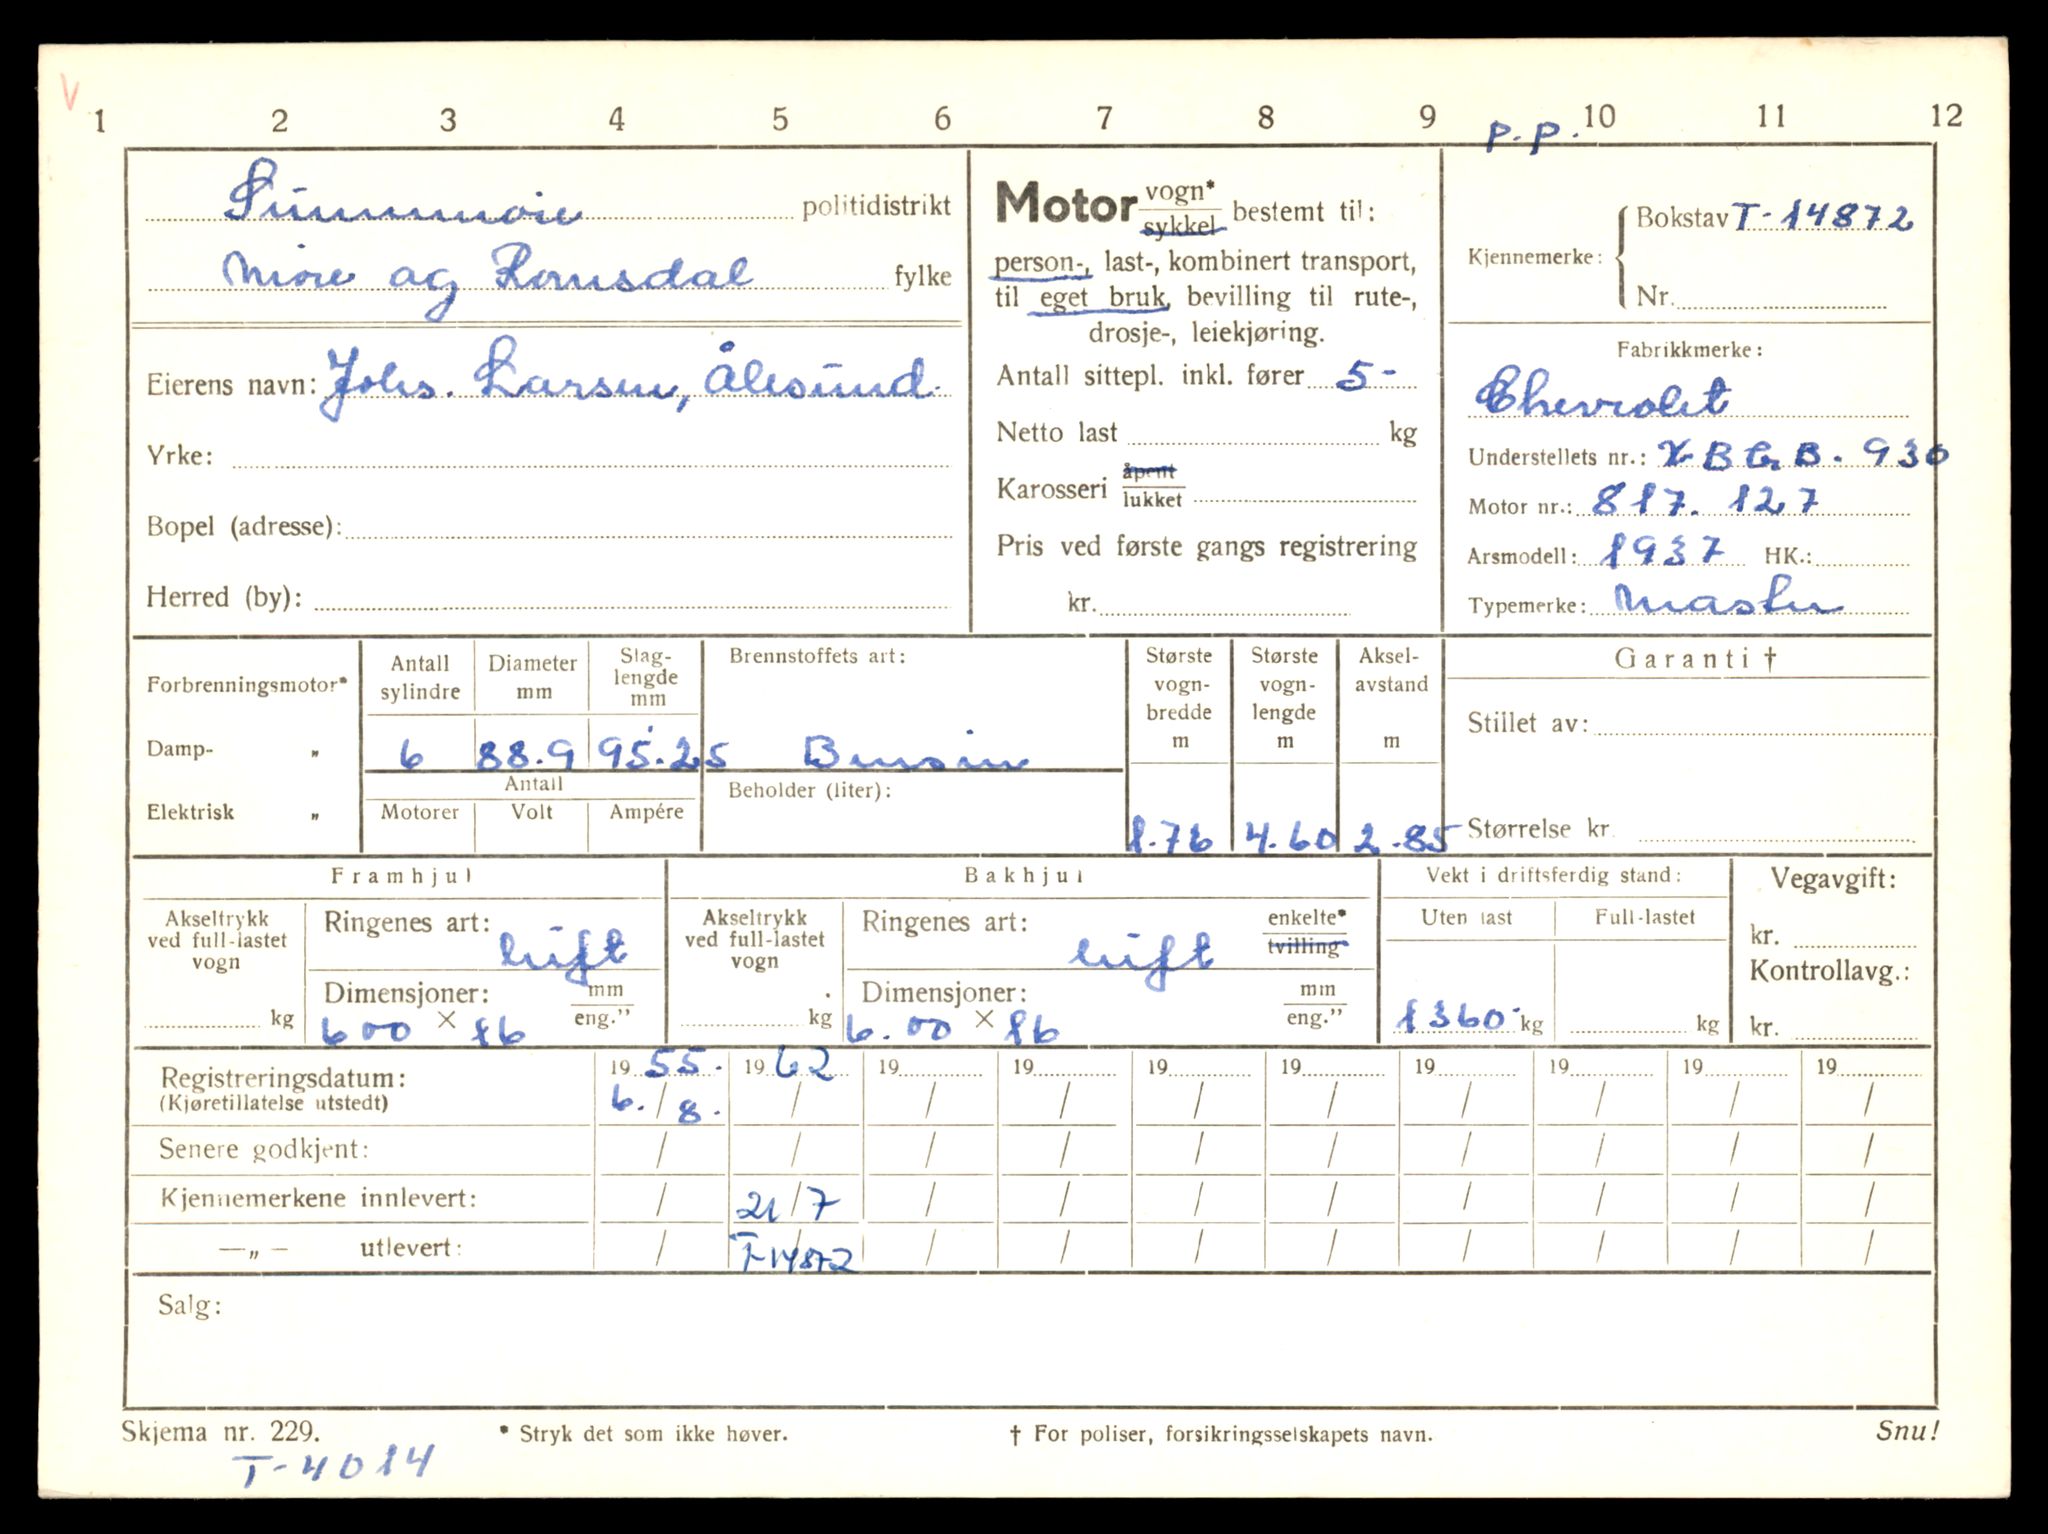 V
1 2 3 4 5 6 7 8 9 10 11 12
P.P.
Sunnmøre politidistrikt
Møre og Romsdal fylke
Eierens navn: Johs. Larsen, Ålesund.
Yrke:
Bopel (adresse):
Herred (by):
Motor vogn* sykkel bestemt til:
person-, last-, kombinert transport,
til eget bruk, bevilling til rute-,
drosje-, leiekjøring.
Antall sittepl. inkl. fører 5-
Netto last kg
Karosseri åpent lukket
Pris ved første gangs registrering
kr.
Kjennemerke: Bokstav T-14872
Nr.
Fabrikkmerke:
Chevrolet
Understellets nr.: B. 930
Motor nr.: 817.127
Arsmodell: 1937 HK.:
Typemerke: Master
Forbrenningsmotor*
Damp- „
Elektrisk „
Antall sylindre
Diameter mm
Slag-lengde mm
6 88.9 95.25
Antall
Motorer Volt Ampére
Brennstoffets art:
Bensin
Beholder (liter):
Største vogn-bredde m
1.76
Største vogn-lengde m
4.60
Aksel-avstand m
2.85
Garanti †
Stillet av:
Størrelse kr.
Framhjul
Akseltrykk ved full-lastet vogn
kg
Ringenes art: luft
Dimensjoner: mm eng."
600 × 16
Bakhjul
Akseltrykk ved full-lastet vogn
kg
Ringenes art: luft enkelte* tvilling
Dimensjoner: mm eng."
6.00 × 16
Vekt i driftsferdig stand:
Uten last Full-lastet
1360 kg kg
Vegavgift:
kr.
Kontrollavg.:
kr.
Registreringsdatum: 1955. 1962 19 19 19 19 19 19 19 19
(Kjøretillatelse utstedt) 6./8. / / / / / / / / /
Senere godkjent: / / / / / / / / / /
Kjennemerkene innlevert: / 21/7 / / / / / / / /
—„— utlevert: / T-14872 / / / / / / / /
Salg:
Skjema nr. 229. * Stryk det som ikke høver. † For poliser, forsikringsselskapets navn. Snu!
T-4014